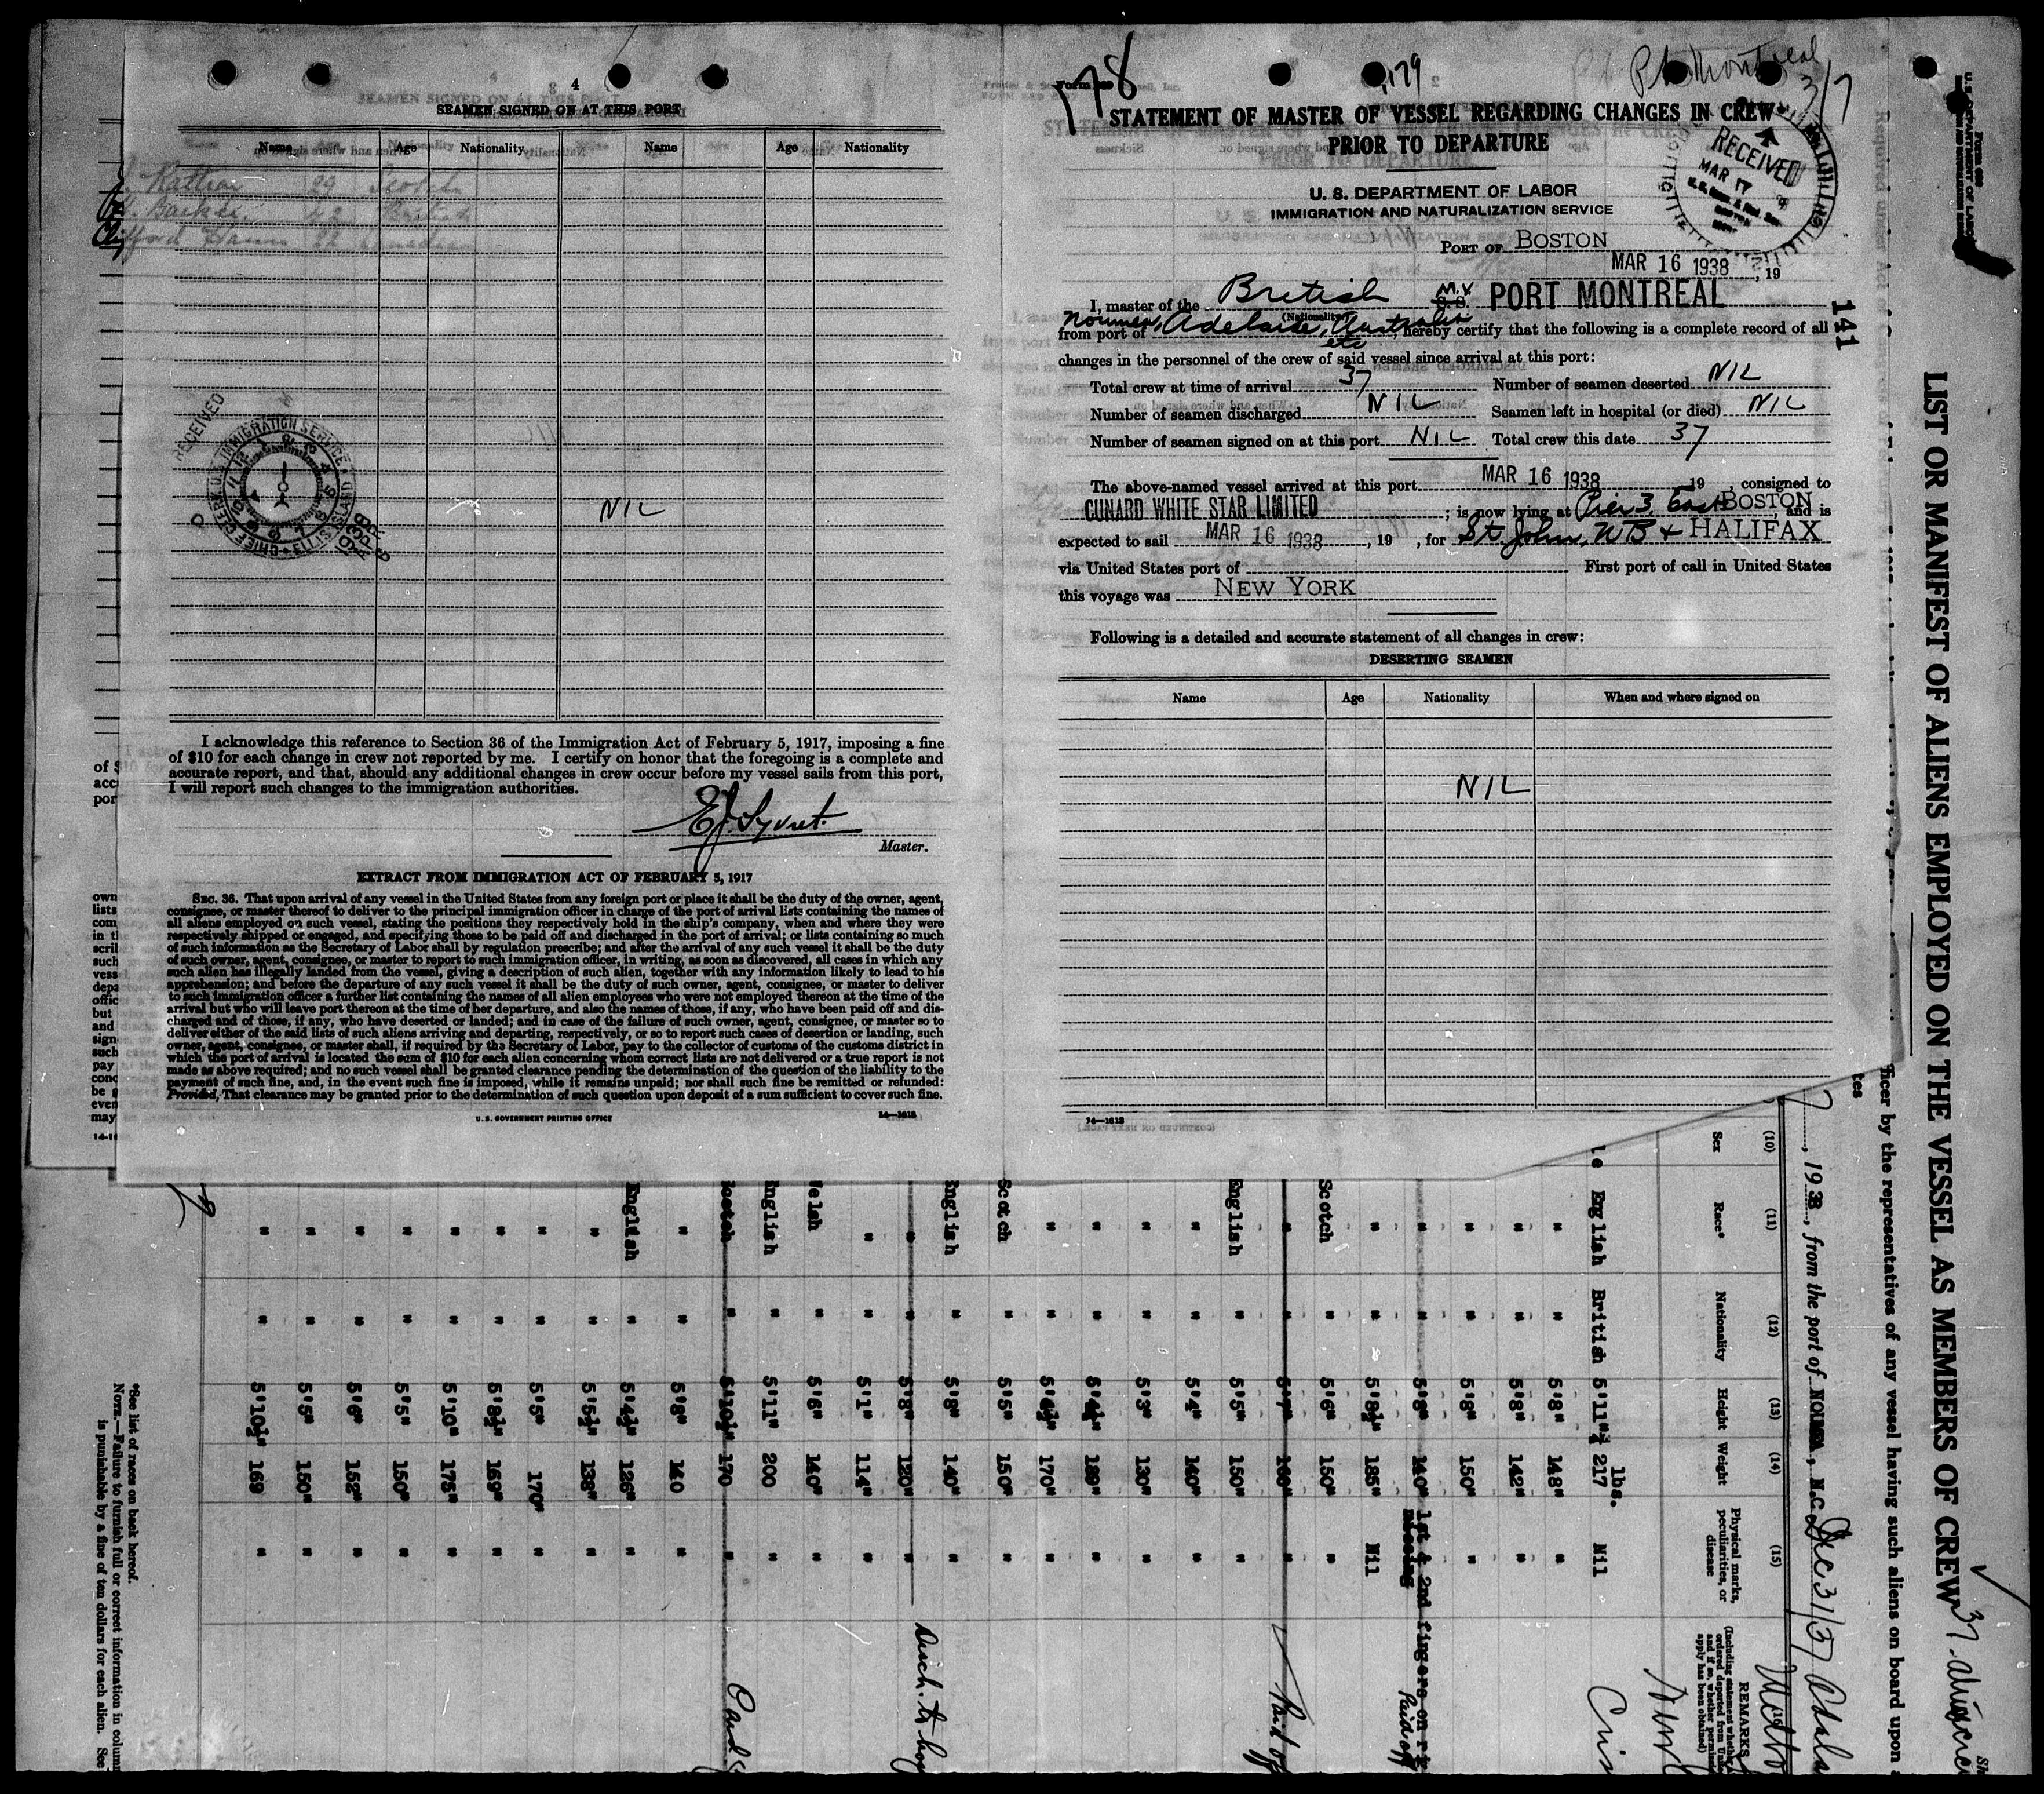 4
SEAMEN SIGNED ON AT THIS PORT
Name Age Nationality Name Age Nationality
29 Scotch
British
Clifford 22
RECEIVED
CHIEF CLERK U.S. IMMIGRATION SERVICE
ELLIS ISLAND
1938 APR
NIL
I acknowledge this reference to Section 36 of the Immigration Act of February 5, 1917, imposing a fine
of $10 for each change in crew not reported by me. I certify on honor that the foregoing is a complete and
accurate report, and that, should any additional changes in crew occur before my vessel sails from this port,
I will report such changes to the immigration authorities.
E.J. Syvret.
Master.
EXTRACT FROM IMMIGRATION ACT OF FEBRUARY 5, 1917
SEC. 36. That upon arrival of any vessel in the United States from any foreign port or place it shall be the duty of the owner, agent,
consignee, or master thereof to deliver to the principal immigration officer in charge of the port of arrival lists containing the names of
all aliens employed on such vessel, stating the positions they respectively hold in the ship's company, when and where they were
respectively shipped or engaged, and specifying those to be paid off and discharged in the port of arrival; or lists containing so much
of such information as the Secretary of Labor shall by regulation prescribe; and after the arrival of any such vessel it shall be the duty
of such owner, agent, consignee, or master to report to such immigration officer, in writing, as soon as discovered, all cases in which any
such alien has illegally landed from the vessel, giving a description of such alien, together with any information likely to lead to his
apprehension; and before the departure of any such vessel it shall be the duty of such owner, agent, consignee, or master to deliver
to such immigration officer a further list containing the names of all alien employees who were not employed thereon at the time of the
arrival but who will leave port thereon at the time of her departure, and also the names of those, if any, who have been paid off and dis-
charged and of those, if any, who have deserted or landed; and in case of the failure of such owner, agent, consignee, or master so to
deliver either of the said lists of such aliens arriving and departing, respectively, or so to report such cases of desertion or landing, such
owner, agent, consignee, or master shall, if required by the Secretary of Labor, pay to the collector of customs of the customs district in
which the port of arrival is located the sum of $10 for each alien concerning whom correct lists are not delivered or a true report is not
made as above required; and no such vessel shall be granted clearance pending the determination of the question of the liability to the
payment of such fine, and, in the event such fine is imposed, while it remains unpaid; nor shall such fine be remitted or refunded:
Provided, That clearance may be granted prior to the determination of such question upon deposit of a sum sufficient to cover such fine.
U.S. GOVERNMENT PRINTING OFFICE 14—1613
178 179 Pt. Montreal 3/7
STATEMENT OF MASTER OF VESSEL REGARDING CHANGES IN CREW
PRIOR TO DEPARTURE
RECEIVED
MAR 17
U. S. DEPARTMENT OF LABOR
IMMIGRATION AND NATURALIZATION SERVICE
PORT OF BOSTON
MAR 16 1938, 19
141
I, master of the British M.V. S.S. PORT MONTREAL
(Nationality)
from port of Noumea, Adelaide, Australia etc, hereby certify that the following is a complete record of all
changes in the personnel of the crew of said vessel since arrival at this port:
Total crew at time of arrival 37 Number of seamen deserted NIL
Number of seamen discharged NIL Seamen left in hospital (or died) NIL
Number of seamen signed on at this port NIL Total crew this date 37
The above-named vessel arrived at this port MAR 16 1938 19 , consigned to
CUNARD WHITE STAR LIMITED ; is now lying at Pier 3, East BOSTON, and is
expected to sail MAR 16 1938, 19 , for St. John, NB & HALIFAX
via United States port of First port of call in United States
this voyage was NEW YORK
Following is a detailed and accurate statement of all changes in crew:
DESERTING SEAMEN
Name Age Nationality When and where signed on
NIL
14—1613
Form 689
U.S. DEPARTMENT OF LABOR
LIST OR MANIFEST OF ALIENS EMPLOYED ON THE VESSEL AS MEMBERS OF CREW
37
ficer by the representatives of any vessel having such aliens on board upon
tes
, 1938, from the port of NOUMEA, N.C. Dec 31/37
(10) (11) (12) (13) (14) (15) (16)
Sex Race* Nationality Height Weight Physical marks, peculiarities, or disease REMARKS
(Including statement whether
ordered deported from
and if so, whether permission
apply has been obtained)
le English British 5'11"¾ lbs. 217 Nil
" " 5'8" 148" "
" " 5'8" 142" "
" " 5'8" 150" "
" " 5'8" 140" 1st & 2nd fingers on missing Paid off
" " 5'8½" 185" Nil
Scotch " 5'6" 150" "
" " 5'7" 160" " Paid off
English " 5'5" 150" "
" " 5'4" 140" "
" " 5'3" 130" "
" " 5'4½" 189" "
" " 5'4½" 170" "
Scotch " 5'5" 150" "
English " 5'8" 140" "
" " 5'8" 120" " Disch. to
" " 5'1" 114" "
Welsh " 5'6" 140" "
English " 5'11" 200 "
Scotch " 5'10½" 170 "
" " 5'8" 140 "
English " 5'4½" 126" "
" " 5'5½" 138" "
" " 5'5" 170" "
" " 5'8½" 169" "
" " 5'10" 175" "
" " 5'5" 150" "
" " 5'6" 152" "
" " 5'5" 150" "
" " 5'10½" 169 "
*See list of races on back hereof.
NOTE.—Failure to furnish full or correct information in column
is punishable by a fine of ten dollars for each alien. See